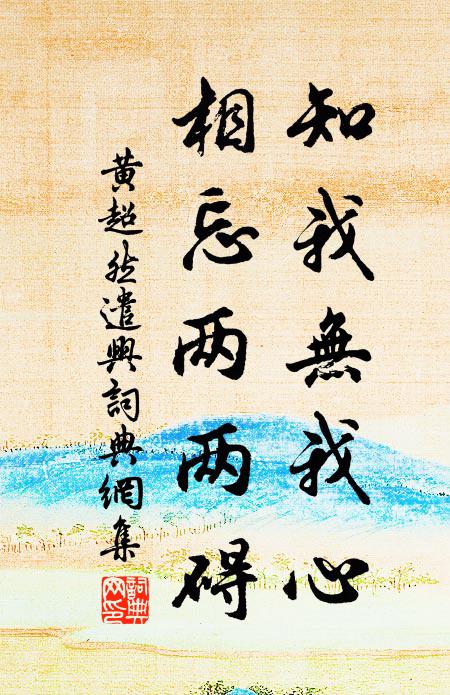 知我無我心
相忘两两碍
黄超然遣興詞典網集
詞典网印